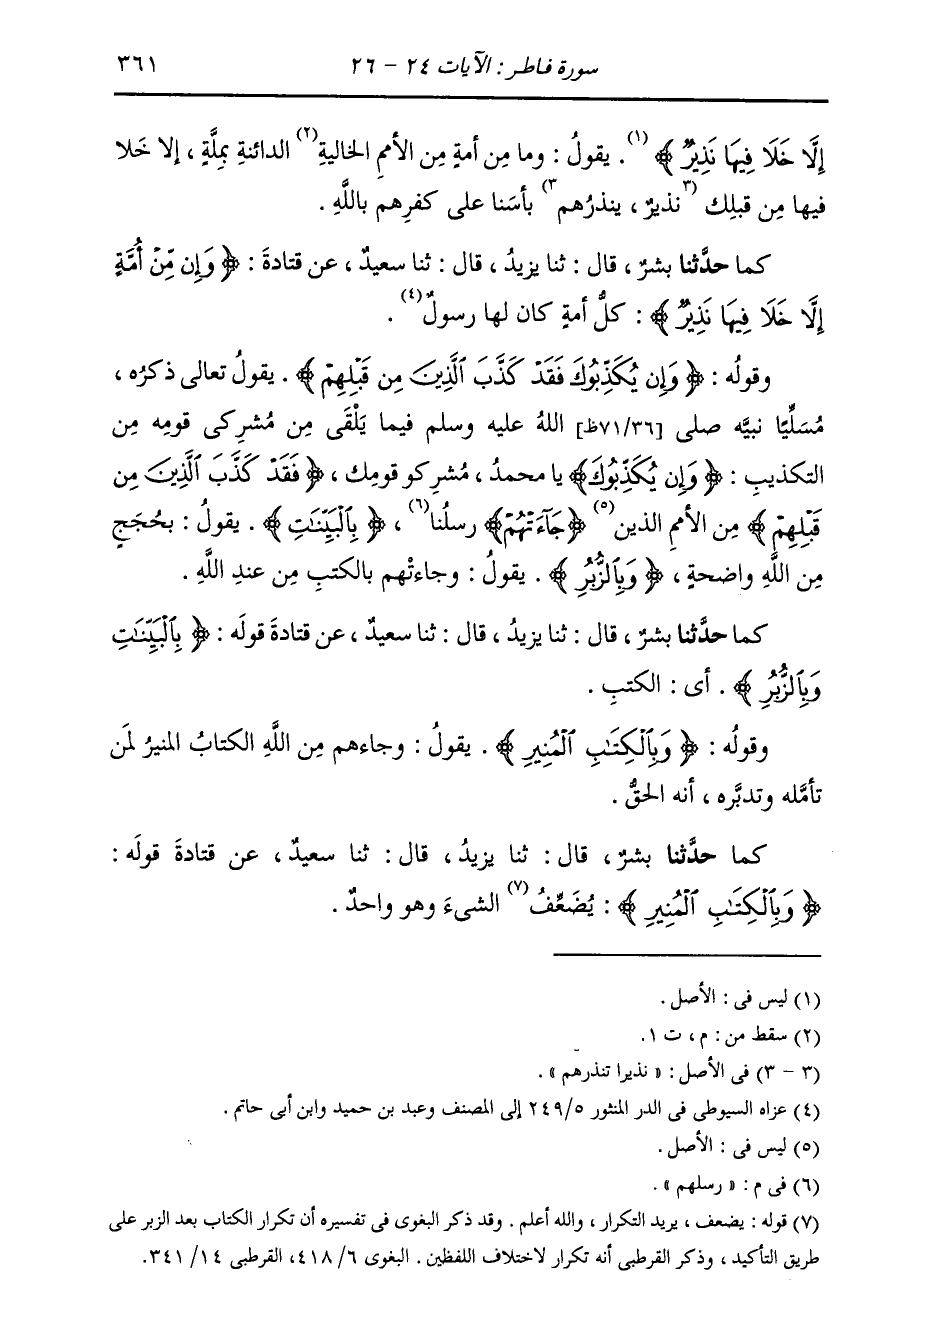 سورة فاطر : الآيات ٢٤ - ٢٦ ٣٦١
إِلَّا خَلَا فِيهَا نَذِيرٌ ﴾ (١) . يقولُ : وما مِن أمةٍ مِن الأممِ الخاليةِ (٢) الدائنةِ بملَّةٍ ، إلا خَلا
فيها مِن قبلِك (٣ نذيرٌ ، ينذرُهم ٣) بأسَنا على كفرِهم باللَّهِ .
كما حدَّثنا بشرٌ ، قال : ثنا يزيدُ ، قال : ثنا سعيدٌ ، عن قتادةَ : ﴿ وَإِن مِّنْ أُمَّةٍ
إِلَّا خَلَا فِيهَا نَذِيرٌ ﴾ : كلُّ أمةٍ كان لها رسولٌ (٤) .
وقولُه : ﴿ وَإِن يُكَذِّبُوكَ فَقَدْ كَذَّبَ ٱلَّذِينَ مِن قَبْلِهِمْ ﴾ . يقولُ تعالى ذكرُه ،
مُسَلِّيًا نبيَّه صلى [٧١/٣٦ظ] اللهُ عليه وسلم فيما يَلْقَى مِن مُشركى قومِه مِن
التكذيبِ : ﴿ وَإِن يُكَذِّبُوكَ ﴾ يا محمدُ ، مُشركو قومِك ، ﴿ فَقَدْ كَذَّبَ ٱلَّذِينَ مِن
قَبْلِهِمْ ﴾ مِن الأممِ الذين (٥) ﴿ جَآءَتْهُمْ ﴾ رسلُنا (٦) ، ﴿ بِٱلْبَيِّنَٰتِ ﴾ . يقولُ : بحُجَجٍ
مِن اللَّهِ واضحةٍ ، ﴿ وَبِٱلزُّبُرِ ﴾ . يقولُ : وجاءتْهم بالكتبِ مِن عندِ اللَّهِ .
كما حدَّثنا بشرٌ ، قال : ثنا يزيدُ ، قال : ثنا سعيدٌ ، عن قتادةَ قولَه : ﴿ بِٱلْبَيِّنَٰتِ
وَبِٱلزُّبُرِ ﴾ . أى : الكتبِ .
وقولُه : ﴿ وَبِٱلْكِتَٰبِ ٱلْمُنِيرِ ﴾ . يقولُ : وجاءهم مِن اللَّهِ الكتابُ المنيرُ لمَن
تأمَّله وتدبَّره ، أنه الحقُّ .
كما حدَّثنا بشرٌ ، قال : ثنا يزيدُ ، قال : ثنا سعيدٌ ، عن قتادةَ قولَه :
﴿ وَبِٱلْكِتَٰبِ ٱلْمُنِيرِ ﴾ : يُضَعِّفُ (٧) الشىءَ وهو واحدٌ .
(١) ليس فى : الأصل .
(٢) سقط من : م ، ت ١.
(٣ - ٣) فى الأصل : « نذيرا تنذرهم » .
(٤) عزاه السيوطى فى الدر المنثور ٢٤٩/٥ إلى المصنف وعبد بن حميد وابن أبى حاتم .
(٥) ليس فى : الأصل .
(٦) فى م : « رسلهم » .
(٧) قوله : يضعف ، يريد التكرار ، والله أعلم . وقد ذكر البغوى فى تفسيره أن تكرار الكتاب بعد الزبر على
طريق التأكيد ، وذكر القرطبى أنه تكرار لاختلاف اللفظين . البغوى ٤١٨/٦، القرطبى ٣٤١/١٤.